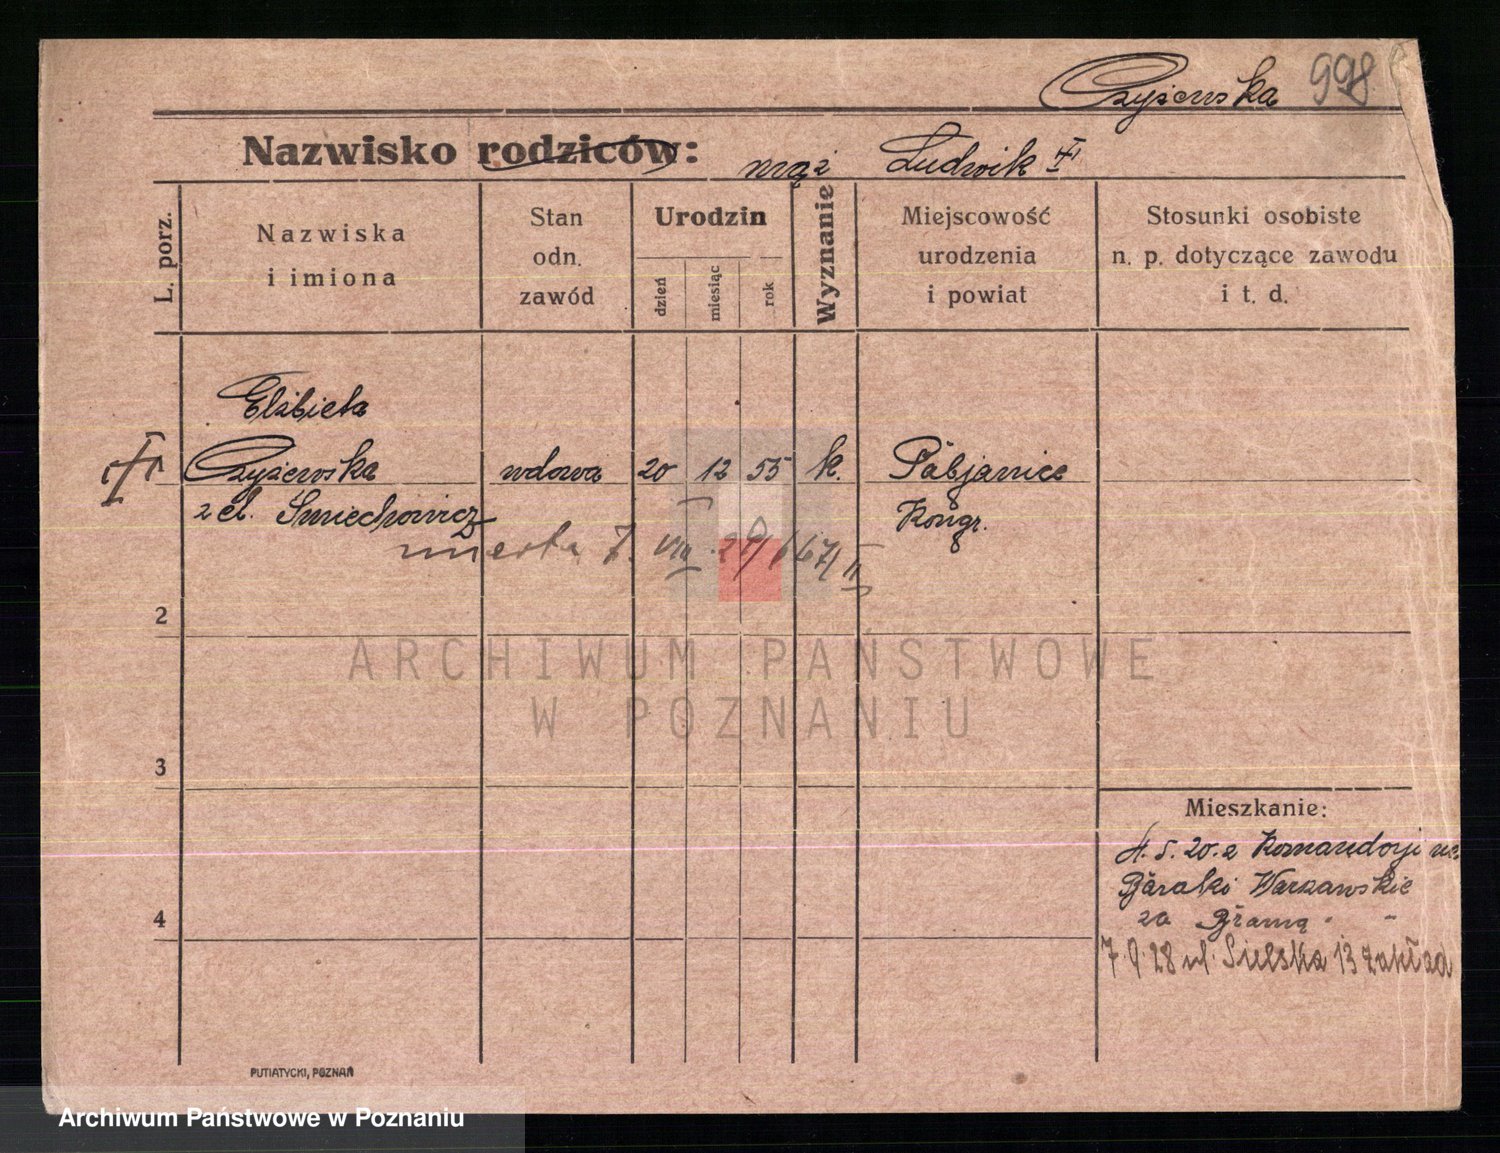 Czyżewska 998
Nazwisko rodziców: mąż Ludwik
L. porz.
Nazwiska
i imiona
Stan
odn.
zawód
Urodzin
dzień
miesiąc
rok
Wyznanie
Miejscowość
urodzenia
i powiat
Stosunki osobiste
n. p. dotyczące zawodu
i t. d.
Elżbieta
Czyżewska wdowa 20 12 55 k. Pabjanice
z d. Śmiechowicz Kongr.
umarła 7. VIII. 29
2
ARCHIWUM PAŃSTWOWE
W POZNANIU
3
Mieszkanie:
4. 5. 20. z Komandorji na
Baraki Warszawskie
4
za Bramą
7.9.28 ul. Sielska 13 zakład
PUTIATYCKI, POZNAŃ
Archiwum Państwowe w Poznaniu